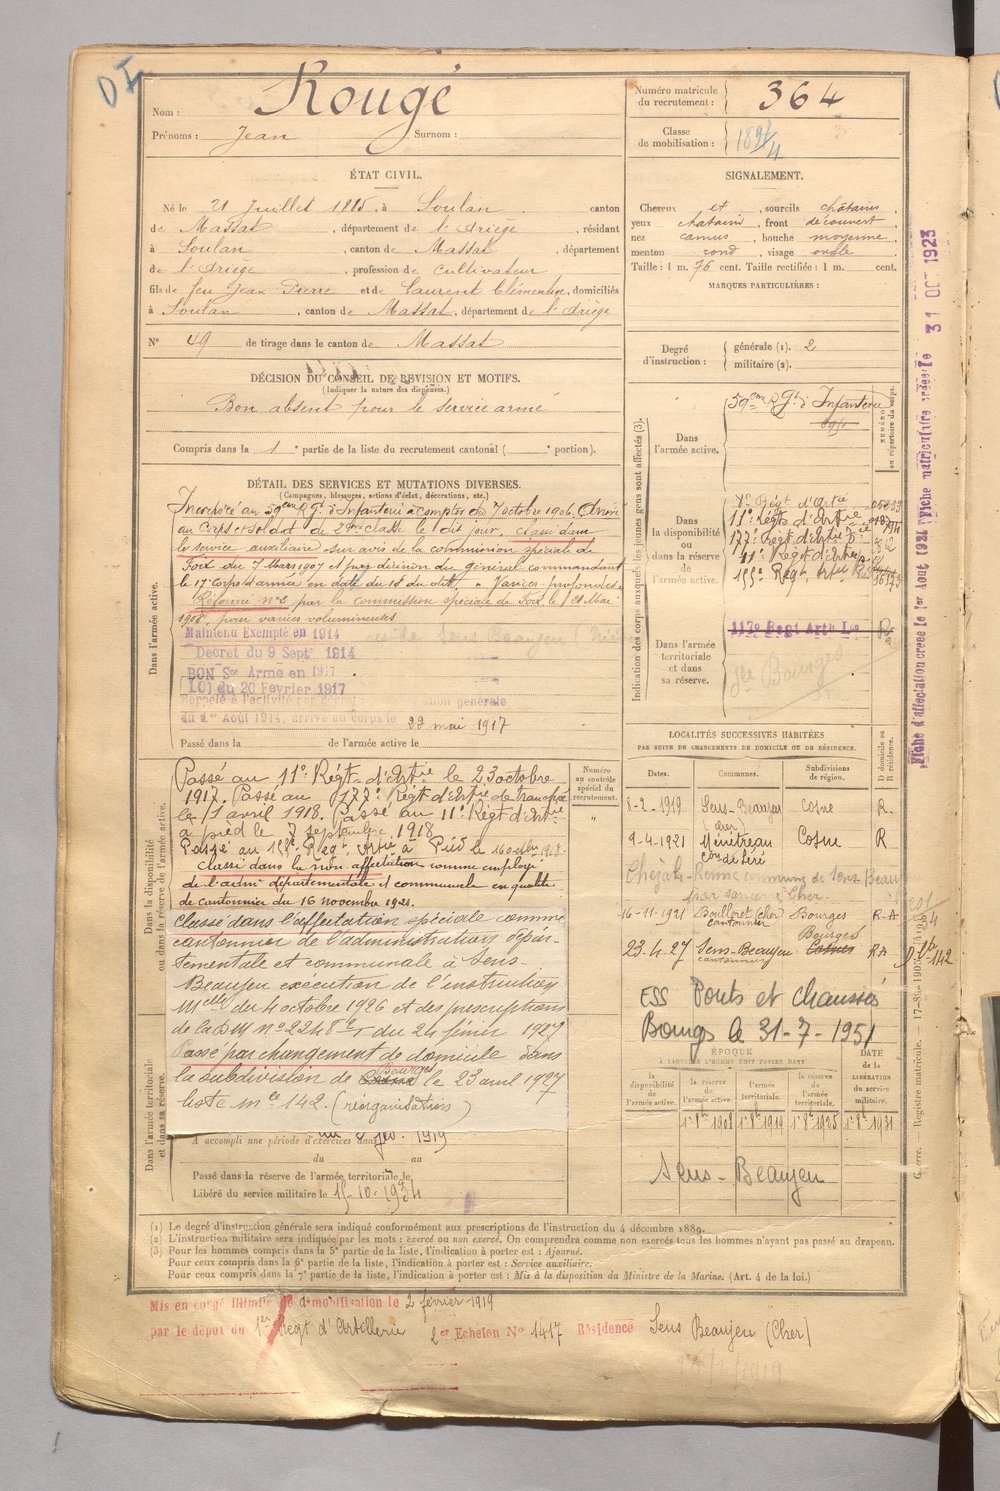 Nom : Rougé
Prénoms : Jean Surnom :
Numéro matricule du recrutement : 364
Classe de mobilisation :
ÉTAT CIVIL.
Né le 21 Juillet 1885, à Soulan canton
de Massat, département de l'Ariège, résidant
à Soulan, canton de Massat, département
de l'Ariège, profession de cultivateur
fils de feu Jean Pierre et de Laurent Clémentine, domiciliés
à Soulan, canton de Massat, département de l'Ariège
N° 49 de tirage dans le canton de Massat
SIGNALEMENT.
Cheveux et, sourcils châtains
yeux châtains, front découvert
nez camus, bouche moyenne
menton rond, visage ovale
Taille : 1 m. 76 cent. Taille rectifiée : 1 m. cent.
MARQUES PARTICULIÈRES :
Degré d'instruction : générale (1). 2
militaire (2).
DÉCISION DU CONSEIL DE REVISION ET MOTIFS.
(Indiquer la nature des dispenses.)
Bon absent pour le service armé
Compris dans la 1e partie de la liste du recrutement cantonal ( e portion).
DÉTAIL DES SERVICES ET MUTATIONS DIVERSES.
(Campagnes, blessures, actions d'éclat, décorations, etc.)
Dans l'armée active.
Incorporé au 59em Rgt d'Infanterie à compter du 7 octobre 1906. Arrivé
au Corps et soldat de 2ème classe le dit jour, classé dans
le service auxiliaire sur avis de la commission spéciale de
Foix du 7 Mars 1907 et par décision du général commandant
le 17e Corps d'armée en date du 18 du dit. Varices profondes.
Réformé n°2 par la commission spéciale de Foix le 21 Mai
1908, pour varices volumineuses
Maintenu Exempté en 1914
Décret du 9 Septe 1914
BON Sce Armé en 1917
LOI du 20 Février 1917
Rappelé à l'activité par décret générale
du 1er Août 1914, arrivé au corps le 22 mai 1917
Passé dans la de l'armée active le
Dans la disponibilité ou dans la réserve de l'armée active.
Passé au 11e Régt d'Artie le 23 octobre
1917. Passé au 177e Régt d'Artie de tranchée
le 1 avril 1918. Passé au 11e Régt d'Artie
à pied le 7 septembre 1918
Passé au 155e Régt Artie à Pied le 16
classé dans la non affectation comme employé
de l'admon départementale et communale en qualité
de cantonnier du 16 novembre 1921.
Classé dans l'affectation spéciale comme
cantonnier de l'administration dépar-
tementale et communale à Sens-
Beaujeu exécution de l'instruction
Mlle du 4 octobre 1926 et des prescriptions
de la DM n° 2248 du 24 février 1927
Passé par changement de domicile dans
la subdivision de Bourges le 23 avril 1927
liste mle 142. (réorganisation)
Numéro au contrôle spécial du recrutement.
Dans l'armée territoriale et dans sa réserve.
A accompli une période d'exercices dans
du au
Passé dans la réserve de l'armée territoriale le
Libéré du service militaire le 15-10-1934
Indication des corps auxquels les jeunes gens sont affectés (3).
Dans l'armée active. 59em Rgt d'Infanterie
NUMÉRO au répertoire du corps.
Dans la disponibilité ou dans la réserve de l'armée active.
11e Régt d'Artie
177e Régt d'Artie
11e Régt d'Artie
155e Régt Artie
Dans l'armée territoriale et dans sa réserve. 117e Regt Artie Lde
LOCALITÉS SUCCESSIVES HABITÉES
PAR SUITE DE CHANGEMENTS DE DOMICILE OU DE RÉSIDENCE.
Dates. Communes. Subdivisions de région. D domicile ou R résidence.
8-2-1919 Sens-Beaujeu (cher) Cosne R.
9-4-1921 Ménétréau Cosne R
Commune de Sens Beaujeu
16-11-1921 Boulleret (cher) cantonnier Bourges R-A
23-4-27 Sens-Beaujeu cantonnier Bourges Cosnes RA
ESS Ponts et chaussés
Bourges le 31-7-1951
ÉPOQUE
À LAQUELLE L'HOMME DOIT PASSER DANS
DATE de la LIBÉRATION du service militaire.
la disponibilité de l'armée active.
la réserve de l'armée active.
l'armée territoriale.
la réserve de l'armée territoriale.
1er 8bre 1908 1er 8bre 1919 1er 8bre 1925 1er 8bre 1931
Sens-Beaujeu
(1) Le degré d'instruction générale sera indiqué conformément aux prescriptions de l'instruction du 4 décembre 1889.
(2) L'instruction militaire sera indiquée par les mots : exercé ou non exercé. On comprendra comme non exercés tous les hommes n'ayant pas passé au drapeau.
(3) Pour les hommes compris dans la 5e partie de la liste, l'indication à porter est : Ajourné.
Pour ceux compris dans la 6e partie de la liste, l'indication à porter est : Service auxiliaire.
Pour ceux compris dans la 7e partie de la liste, l'indication à porter est : Mis à la disposition du Ministre de la Marine. (Art. 4 de la loi.)
Mis en congé illimité de démobilisation le 2 février 1919
par le dépôt du 1er Régt d'Artillerie 2er Echelon N° 1417 Résidence Sens Beaujeu (Cher)
Fiche d'affectation créée le 1er Aout 1921 Fiche matriculaire créée le 31 OCT 1923
Guerre. — Registre matricule.